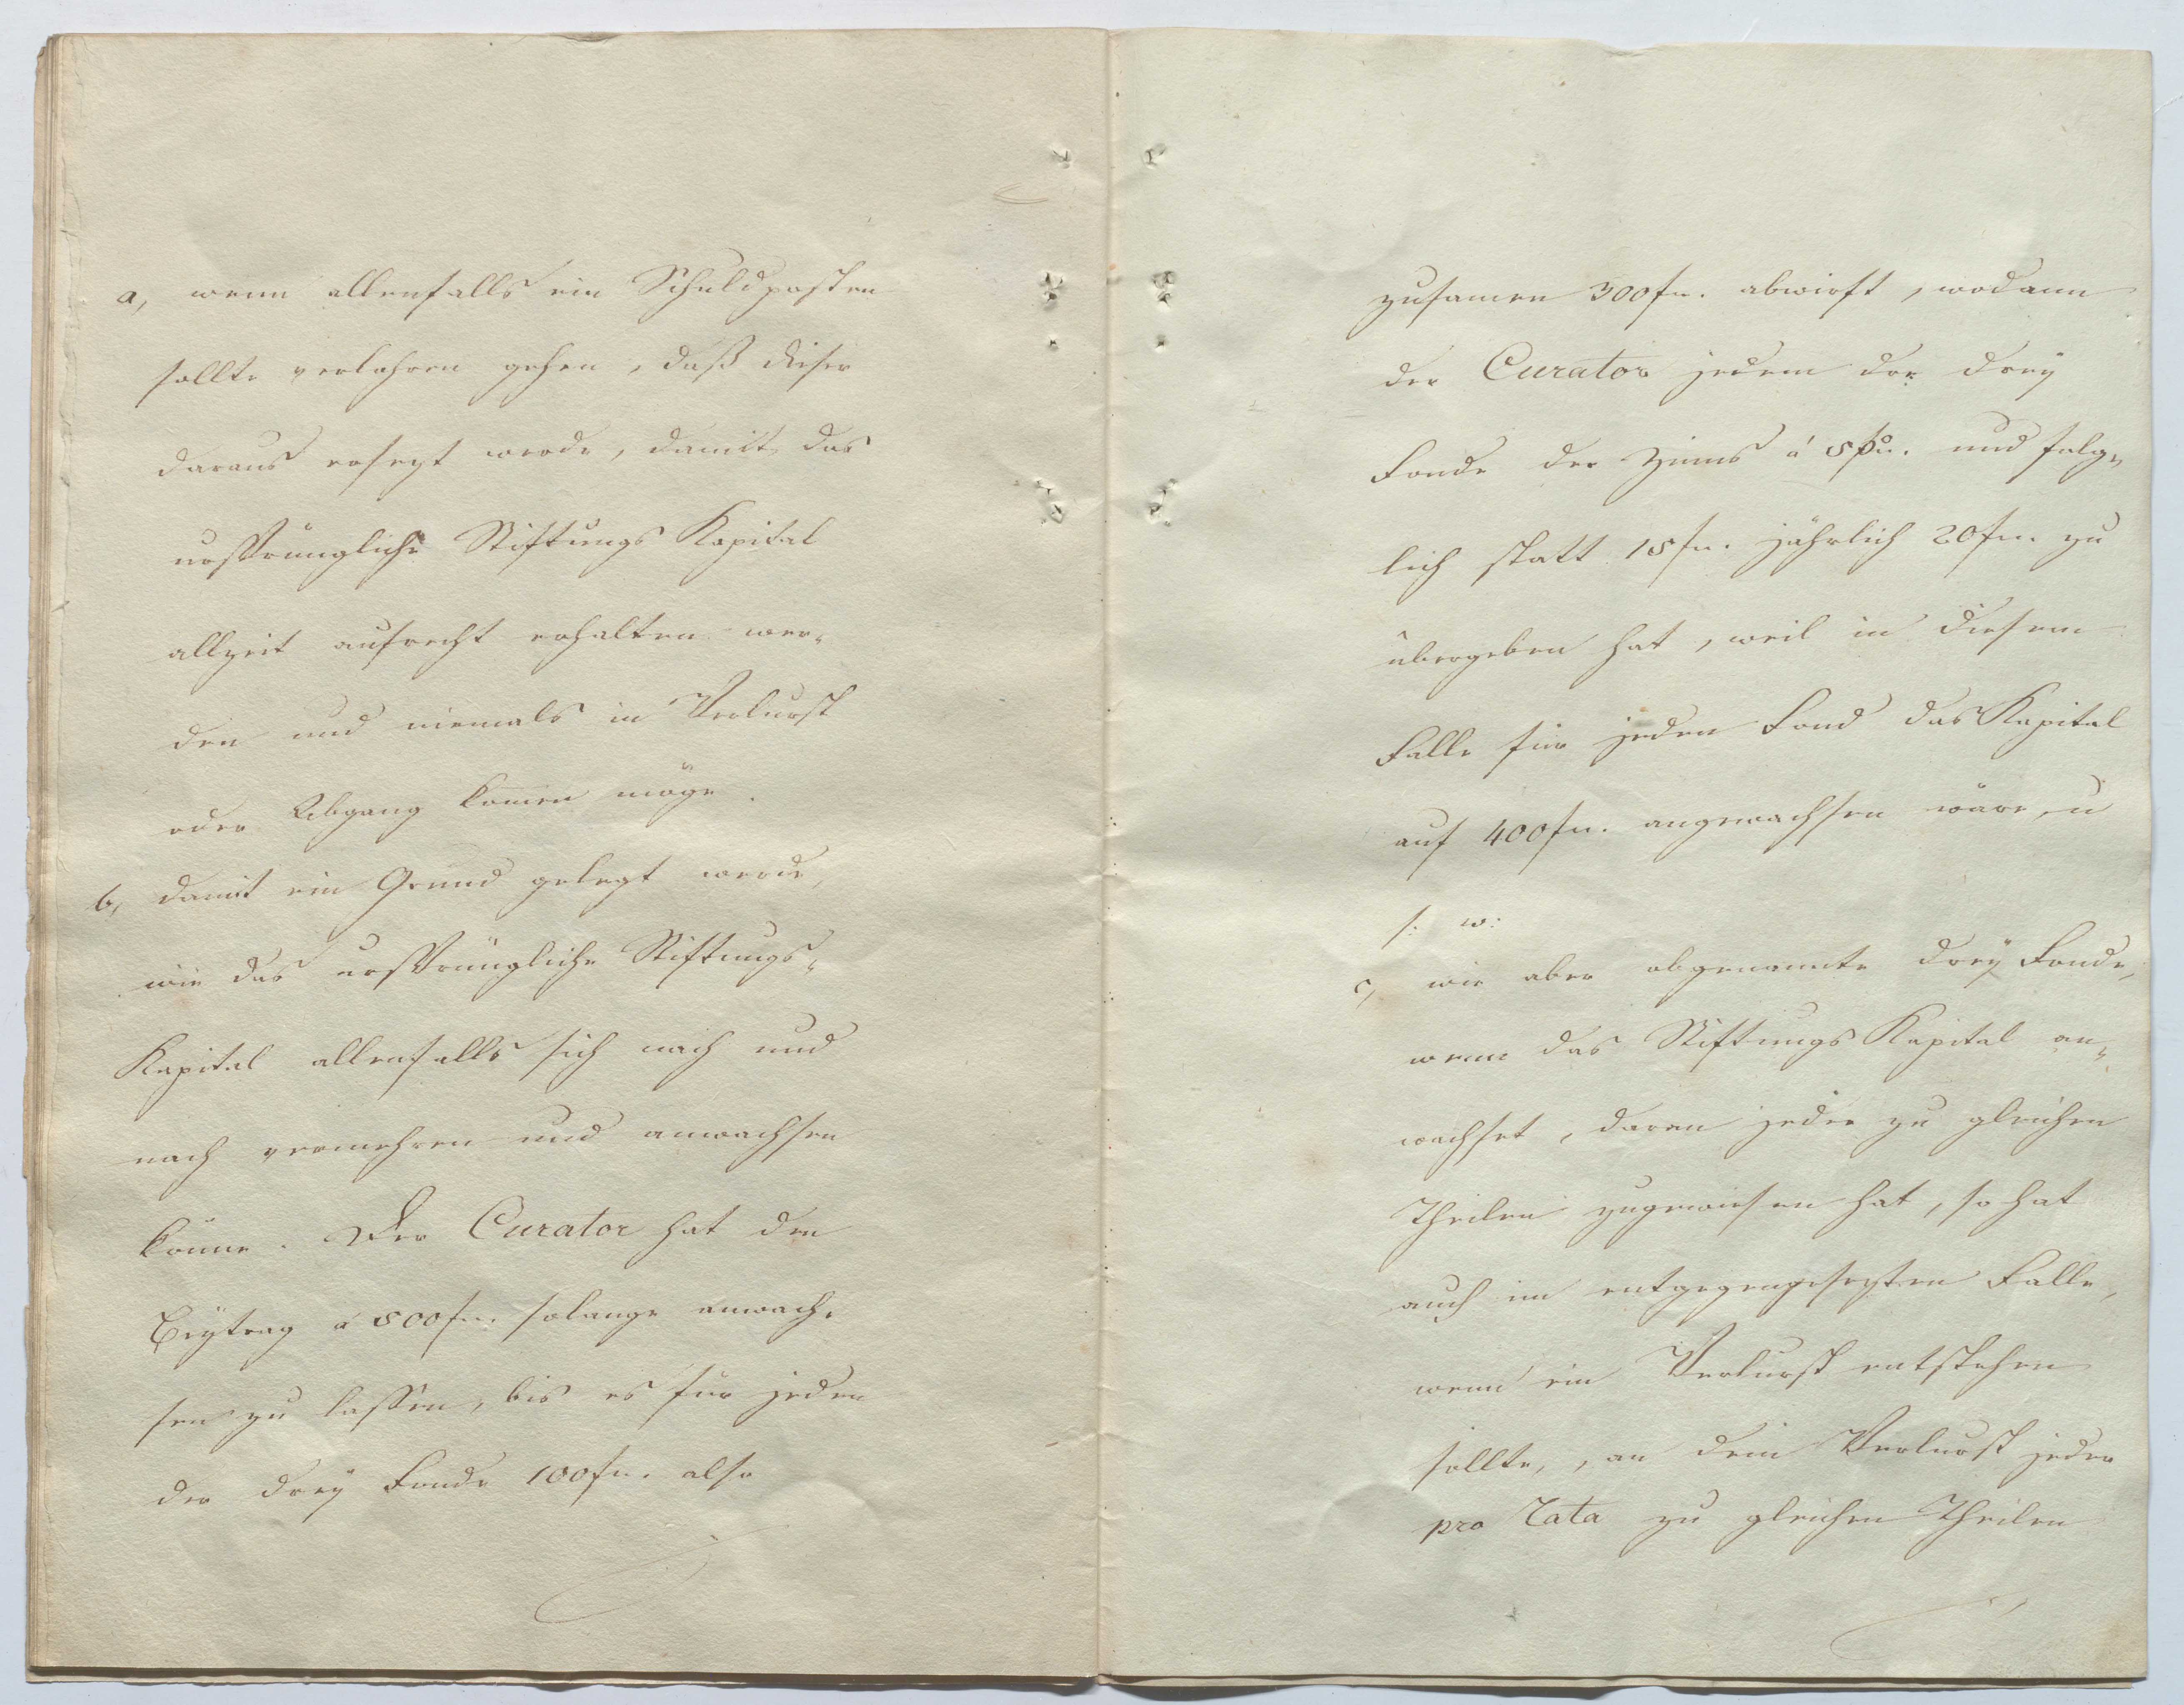 a, wenn allenfalls ein Schuldposten
sollte verlohren gehen, daß dieser
daraus ersezt werde, damit das
ursprüngliche Stiftungs Kapital
allzeit aufrecht erhalten wer„
den und niemals in Verlurst
oder Abgang komen möge.
b, damit ein Grund gelegt werde,
wie das ursprüngliche Stiftungs„
Kapital allenfalls sich nach und
nach vermehren und anwachsen
könne. Der Curator hat den
Beytrag á 500 fn. solange anwach„
sen zu lassen, bis es für jeden
der drey Fonde 100 fn. also
zusamen 300 fn. abwirft, wodann
der Curator jedem der drey
Fonde der Zinns á 5 pc. und folg„
lich statt 15 fn. jährlich 20 fn. zu
übergeben hat, weil in diesem
Falle für jeden Fond das Kapital
auf 400 fn. angewachsen wäre, u
s: w:
c, wie aber obgenannte drey Fonde,
wenn das Stiftungs Kapital an„
wachset, daran jeder zu gleichen
Theilen zugewiesen hat, so hat
auch im entgegengesezten Falle,
wenn ein Verlurst entstehen
sollte, an dem Verlurst jeder
pro rata zu gleichen Theilen